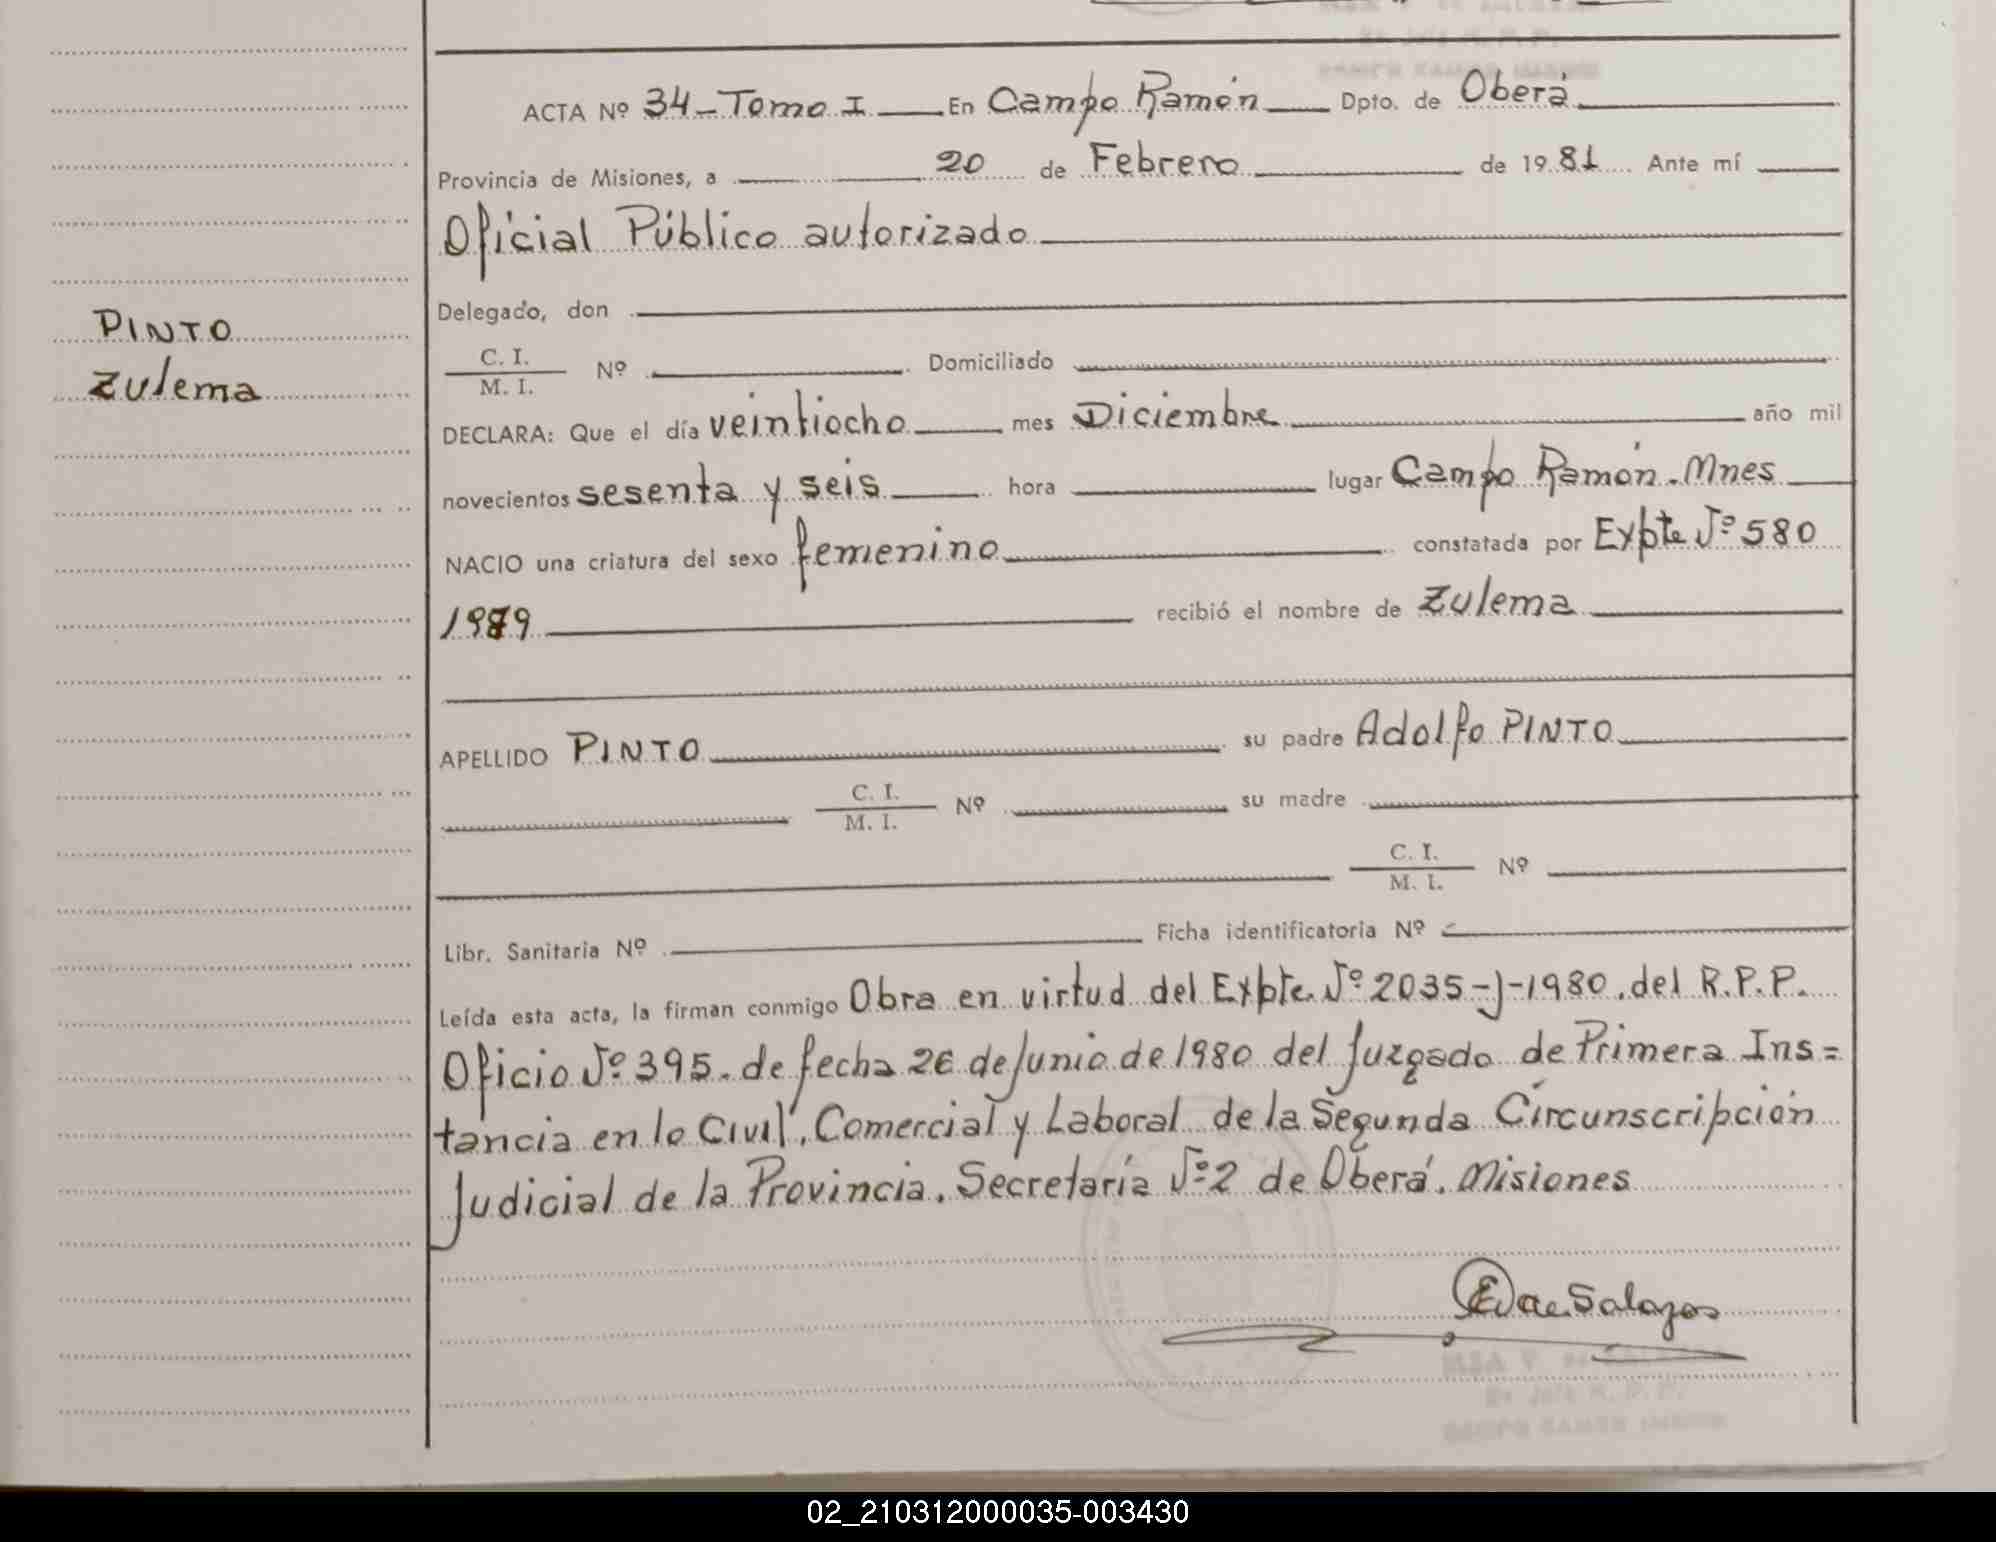 ACTA Nº 34 - Tomo I En Campo Ramón Dpto. de Oberá
Provincia de Misiones, a 20 de Febrero de 1981 Ante mí
Oficial Público autorizado
Delegado, don
PINTO
Zulema
C. I.
M. I. Nº Domiciliado
DECLARA: Que el día veintiocho mes Diciembre año mil
novecientos sesenta y seis hora lugar Campo Ramón. Mnes
NACIO una criatura del sexo femenino constatada por Expte Nº 580
1979 recibió el nombre de Zulema
APELLIDO PINTO su padre Adolfo PINTO
C. I.
M. I. Nº su madre
C. I.
M. I. Nº
Libr. Sanitaria Nº Ficha identificatoria Nº
Leída esta acta, la firman conmigo Obra en virtud del Expte. Nº 2035-J-1980. del R.P.P.
Oficio Nº 395. de fecha 26 de Junio de 1980 del Juzgado de Primera Ins=
tancia en lo Civil, Comercial y Laboral de la Segunda Circunscripción
Judicial de la Provincia. Secretaría Nº 2 de Oberá. Misiones
02_210312000035-003430